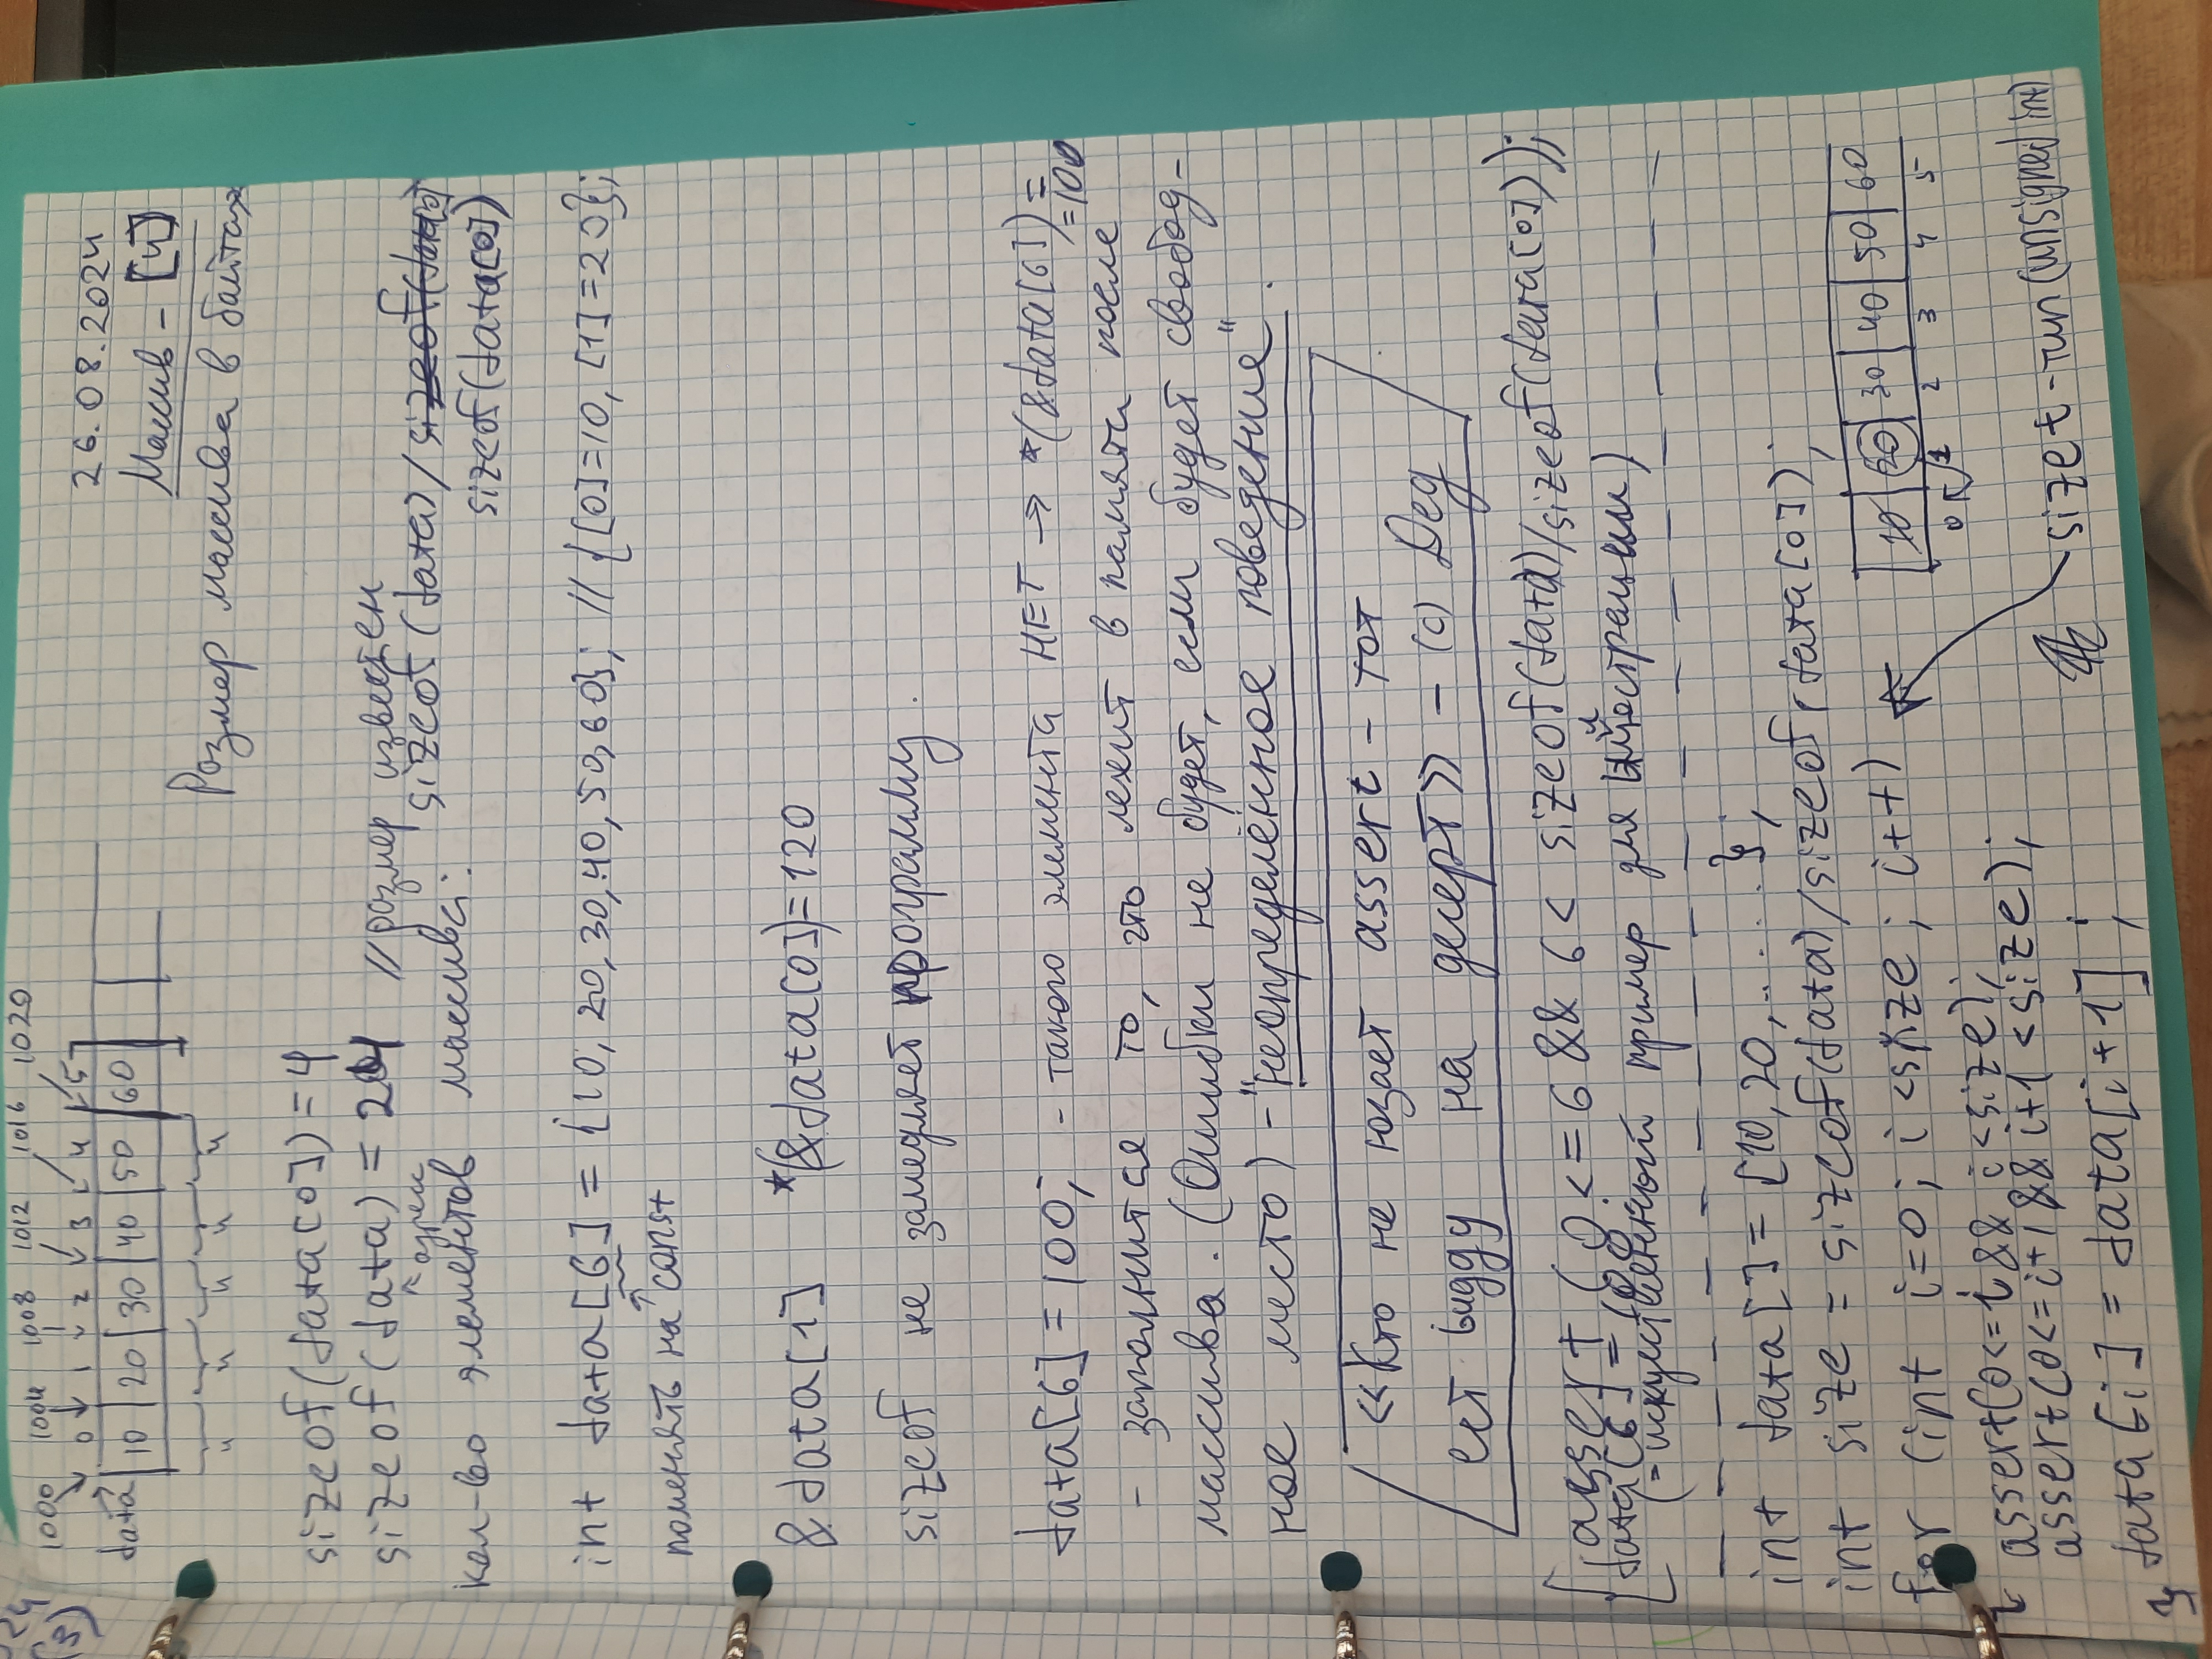 1000 1004 1008 1012 1016 1020
0 1 2 3 4 5
data 10 20 30 40 50 60
4 4 4 4 4
26.08.2024
Массив - [4]
Размер массива в байтах
sizeof(data[0]) = 4
sizeof(data) = 24 // размер известен
адрес
кол-во элементов массива: sizeof(data)/sizeof(data[0])
sizeof(data[0])
int data[6] = {10, 20, 30, 40, 50, 60}; // {[0]=10, [1]=20};
поменять на const
&data[1] *(&data[0])=120
sizeof не замедляет программу.
data[6] = 100; - такого элемента НЕТ → *(&data[6]) =
=100
- заполнится то, что лежит в памяти после
массива. (Ошибки не будет, если будет свобод-
ное место) - "неопределённое поведение".
«Кто не юзает assert - тот
ест на десерт» - (c) Дед
assert (0<=6 && 6 < sizeof(data)/sizeof(data[0]));
data[6] = 100
(- искуственный пример для иллюстрации)
int data[] = {10, 20, ..... };
int size = sizeof(data)/sizeof(data[0]);
for (int i=0; i<size; i++)
10 20 30 40 50 60
0 1 2 3 4 5
{ assert(0<=i && i<size);
assert(0<=i+1 && i+1 <size);
size t - тип (unsigned int)
data[i] = data[i+1];
}